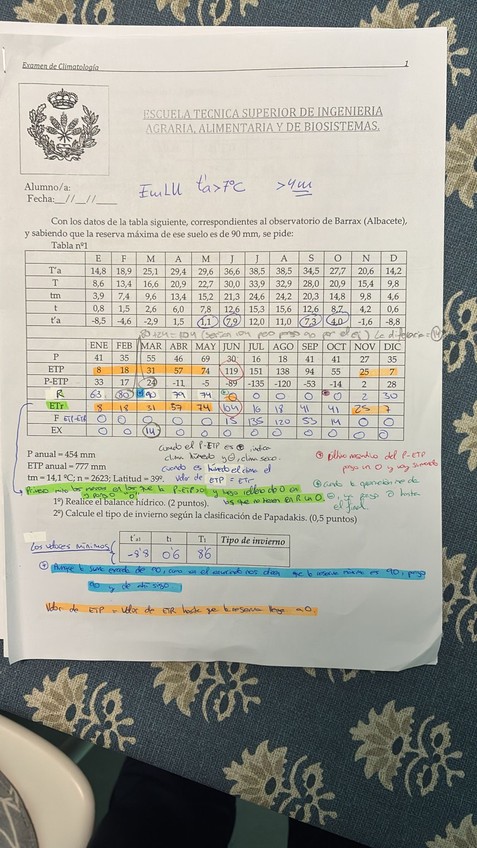 Examen de Climatología 1
ESCUELA TECNICA SUPERIOR DE INGENIERIA
AGRARIA, ALIMENTARIA Y DE BIOSISTEMAS.
Alumno/a:
Fecha:__//__//____
t'a>7°C
Con los datos de la tabla siguiente, correspondientes al observatorio de Barrax (Albacete),
y sabiendo que la reserva máxima de ese suelo es de 90 mm, se pide:
Tabla nº1
E F M A M J J A S O N D
T'a 14,8 18,9 25,1 29,4 29,6 36,6 38,5 38,5 34,5 27,7 20,6 14,2
T 8,6 13,4 16,6 20,9 22,7 30,0 33,9 32,9 28,0 20,9 15,4 9,8
tm 3,9 7,4 9,6 13,4 15,2 21,3 24,6 24,2 20,3 14,8 9,8 4,6
t 0,8 1,5 2,6 6,0 7,8 12,6 15,3 15,6 12,6 8,7 4,2 0,6
t'a -8,5 -4,6 -2,9 1,5 1,1 7,9 12,0 11,0 7,3 4,0 -1,6 -8,8
ENE FEB MAR ABR MAY JUN JUL AGO SEP OCT NOV DIC
P 41 35 55 46 69 30 16 18 41 41 27 35
ETP 8 18 31 57 74 119 151 138 94 55 25 7
P-ETP 33 17 24 -11 -5 -89 -135 -120 -53 -14 2 28
R 63 80 90 79 74 0 0 0 0 0 2 30
ETr 8 18 31 57 74 104 16 18 41 41 25 7
F ETP-ETR 0 0 0 0 0 15 135 120 53 14 0 0
EX 0 0 14 0 0 0 0 0 0 0 0 0
P anual = 454 mm
ETP anual = 777 mm
tm = 14,1 ºC; n = 2623; Latitud = 39º.
Cuando el P-ETP es
valor de ETP = ETr
1º) Realice el balance hídrico. (2 puntos).
2º) Calcule el tipo de invierno según la clasificación de Papadakis. (0,5 puntos)
Los valores mínimos
t'a1 t1 T1 Tipo de invierno
-8'8 0'6 8'6
Valor de ETP = Valor de ETR hasta que la reserva llega a 0